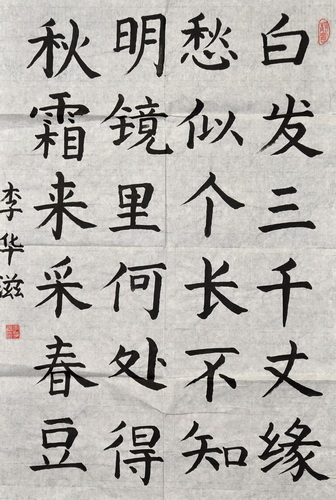 白发三千丈缘
愁似个长不知
明镜里何处得
秋霜来采春豆
李华滋